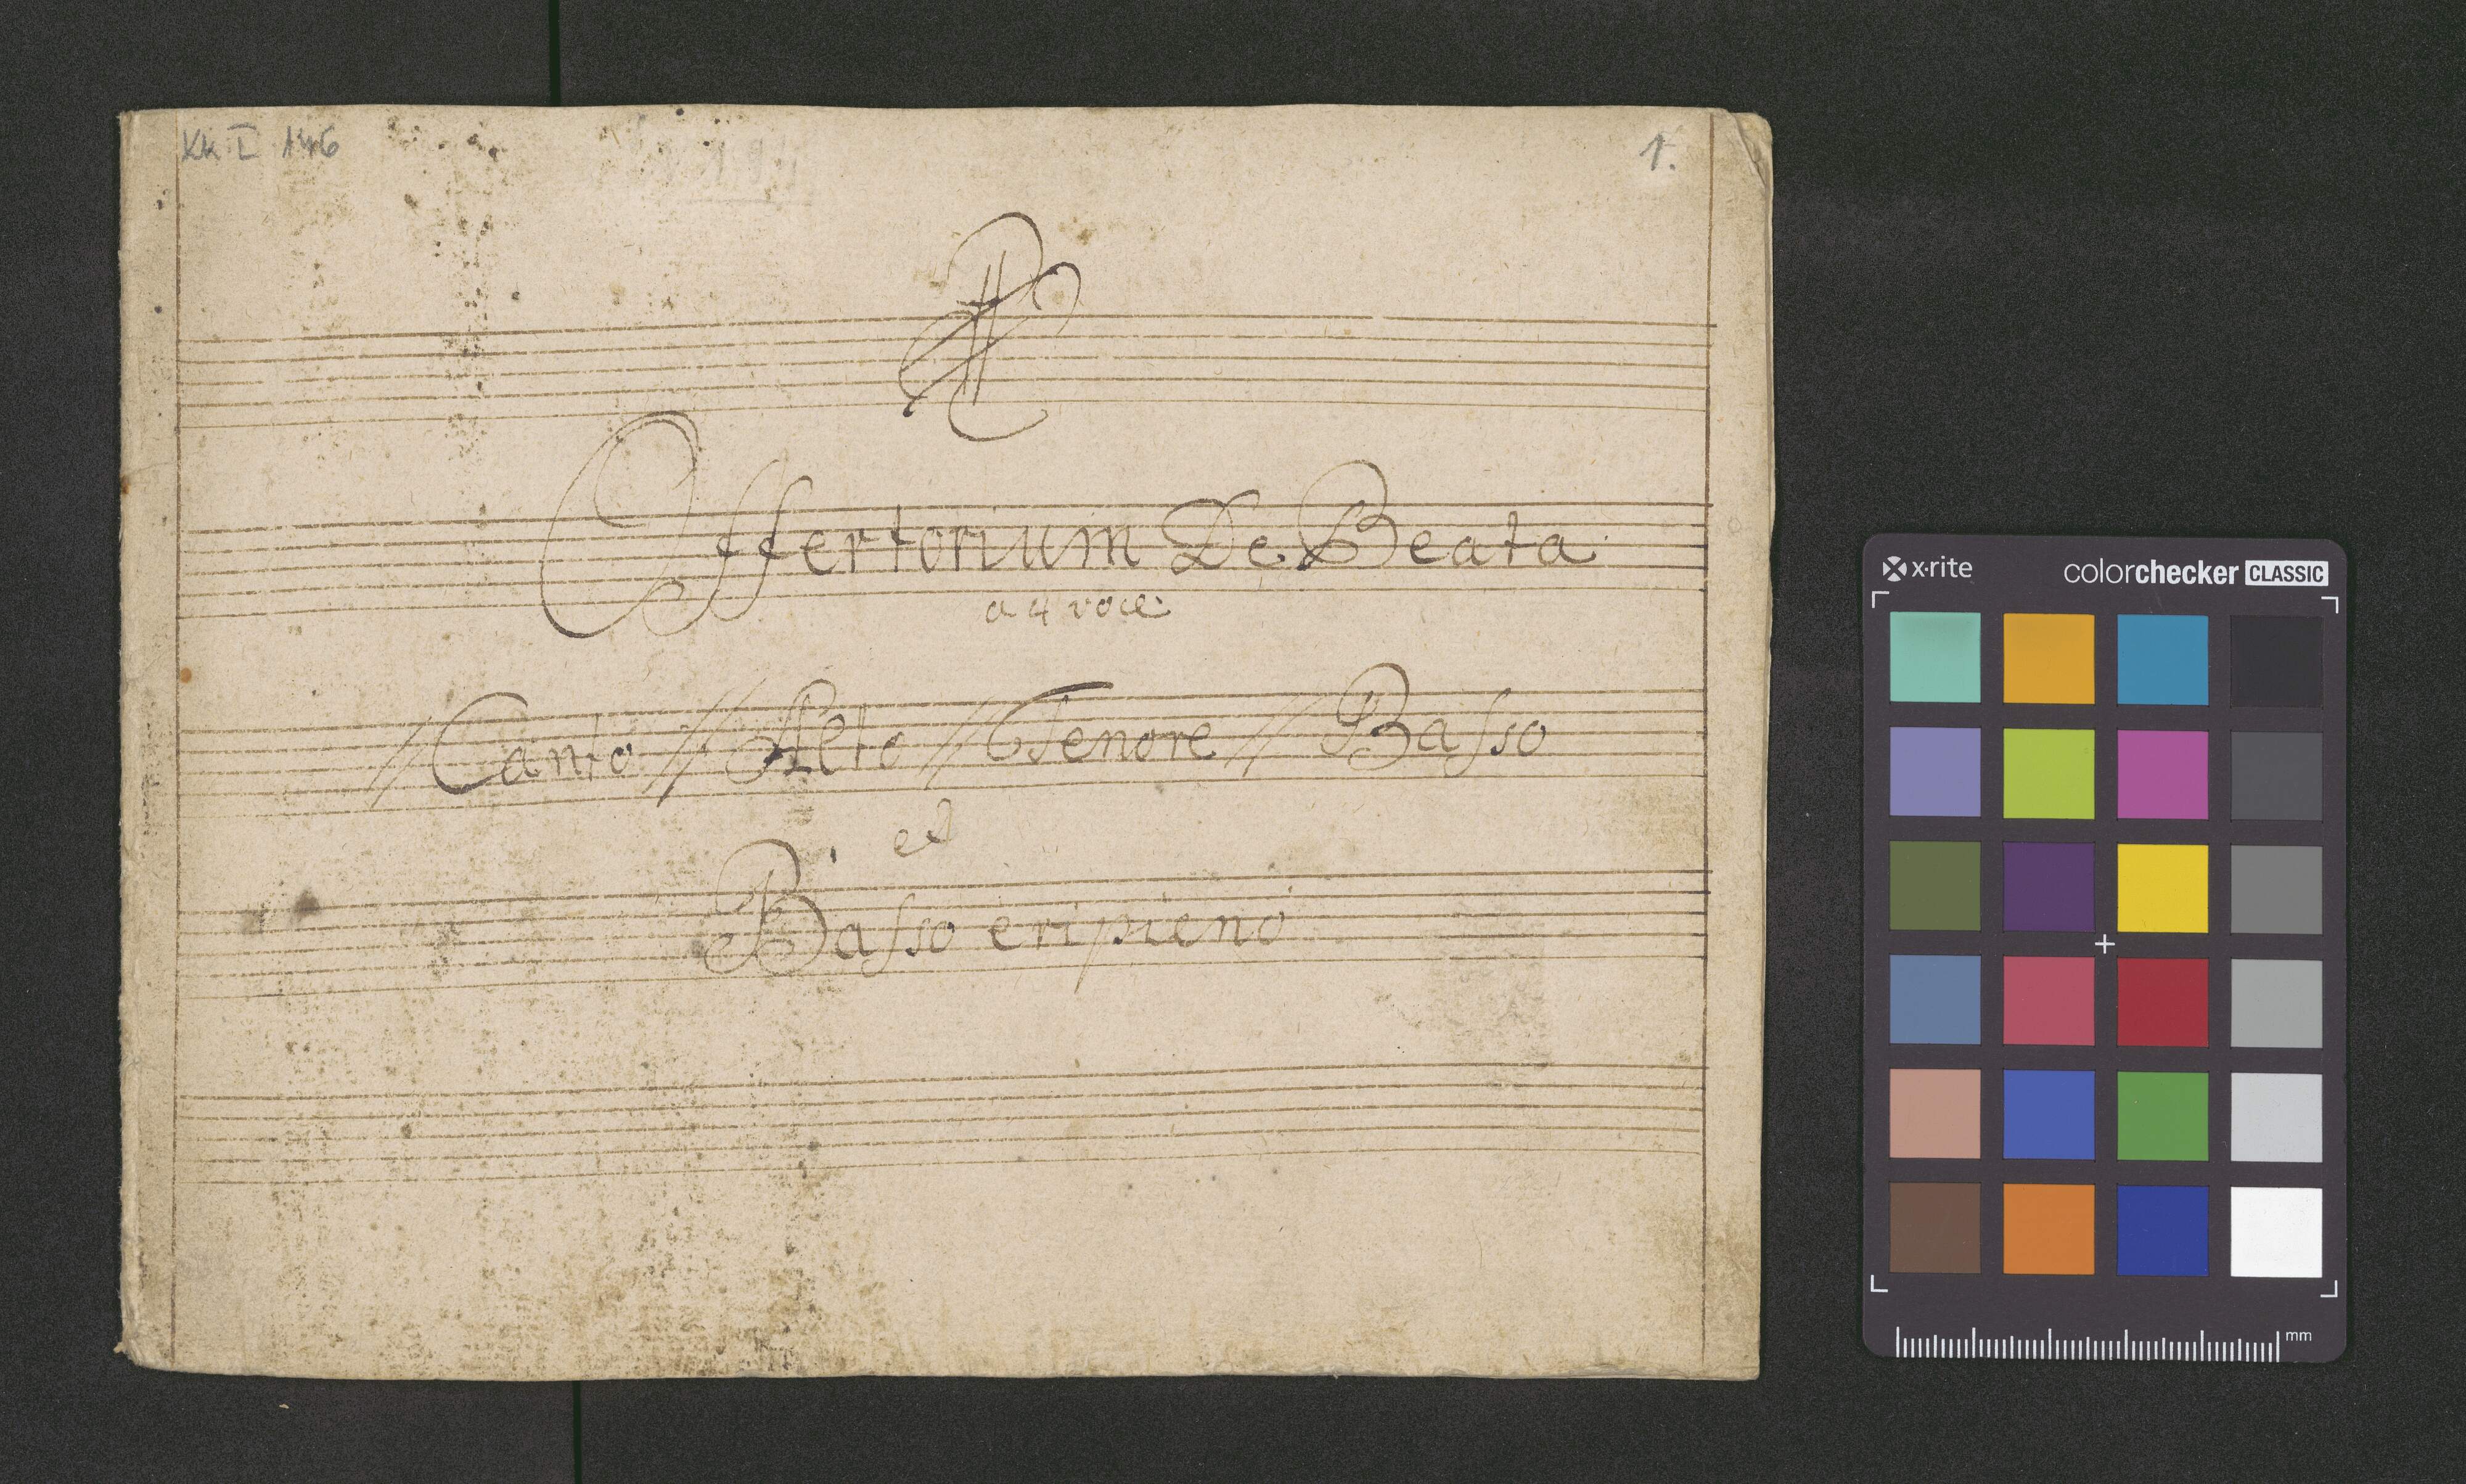 Kk I 146
1.
Offertorium De Beata
a 4 voce
// Canto // Alto // Tenore // Basso
et
Basso eripieno
x·rite colorchecker CLASSIC
mm